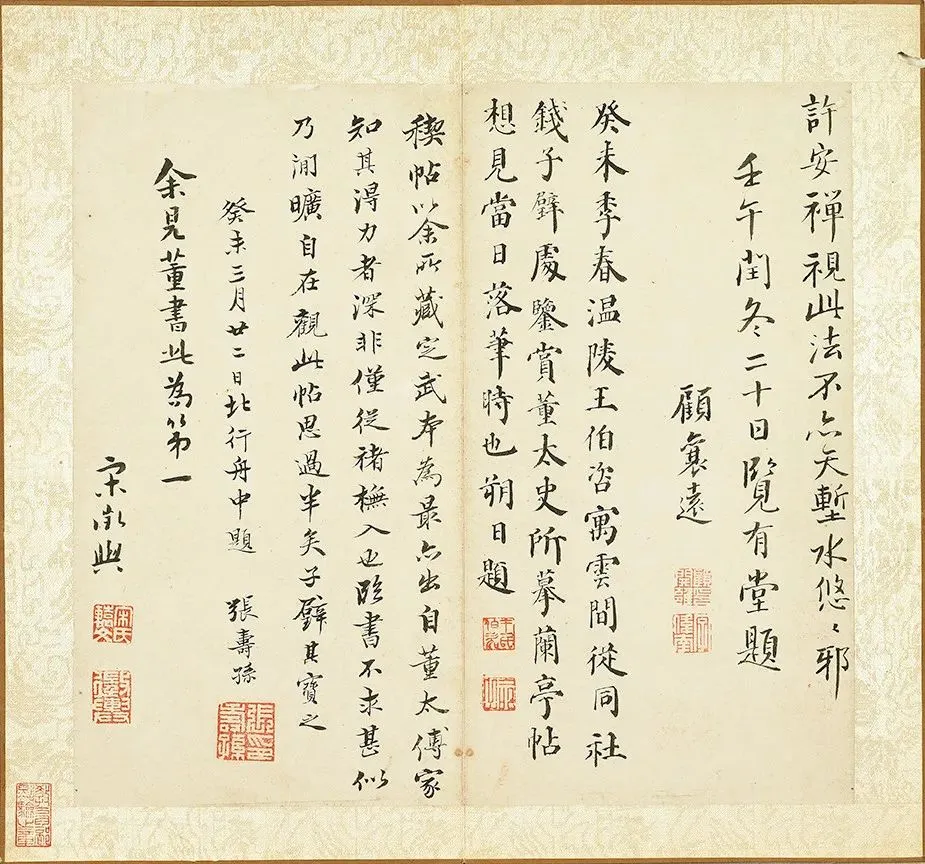 許安禪視此法不亦天塹水悠〻邪
壬午閏冬二十日覽有堂題
顧襄遠
癸未季春温陵王伯咨寓雲間從同社
錢子璧處鑒賞董太史所摹蘭亭帖
想見當日落筆時也朔日題
稧帖以余所藏定武本為最亦出自董太傅家
知其淂力者深非僅從褚橅入也臨書不求甚似
乃閒曠自在觀此帖思過半矣子璧其寶之
癸未三月廿二日北行舟中題 張壽孫
余見董書此為第一
宋徵輿
張印壽孫